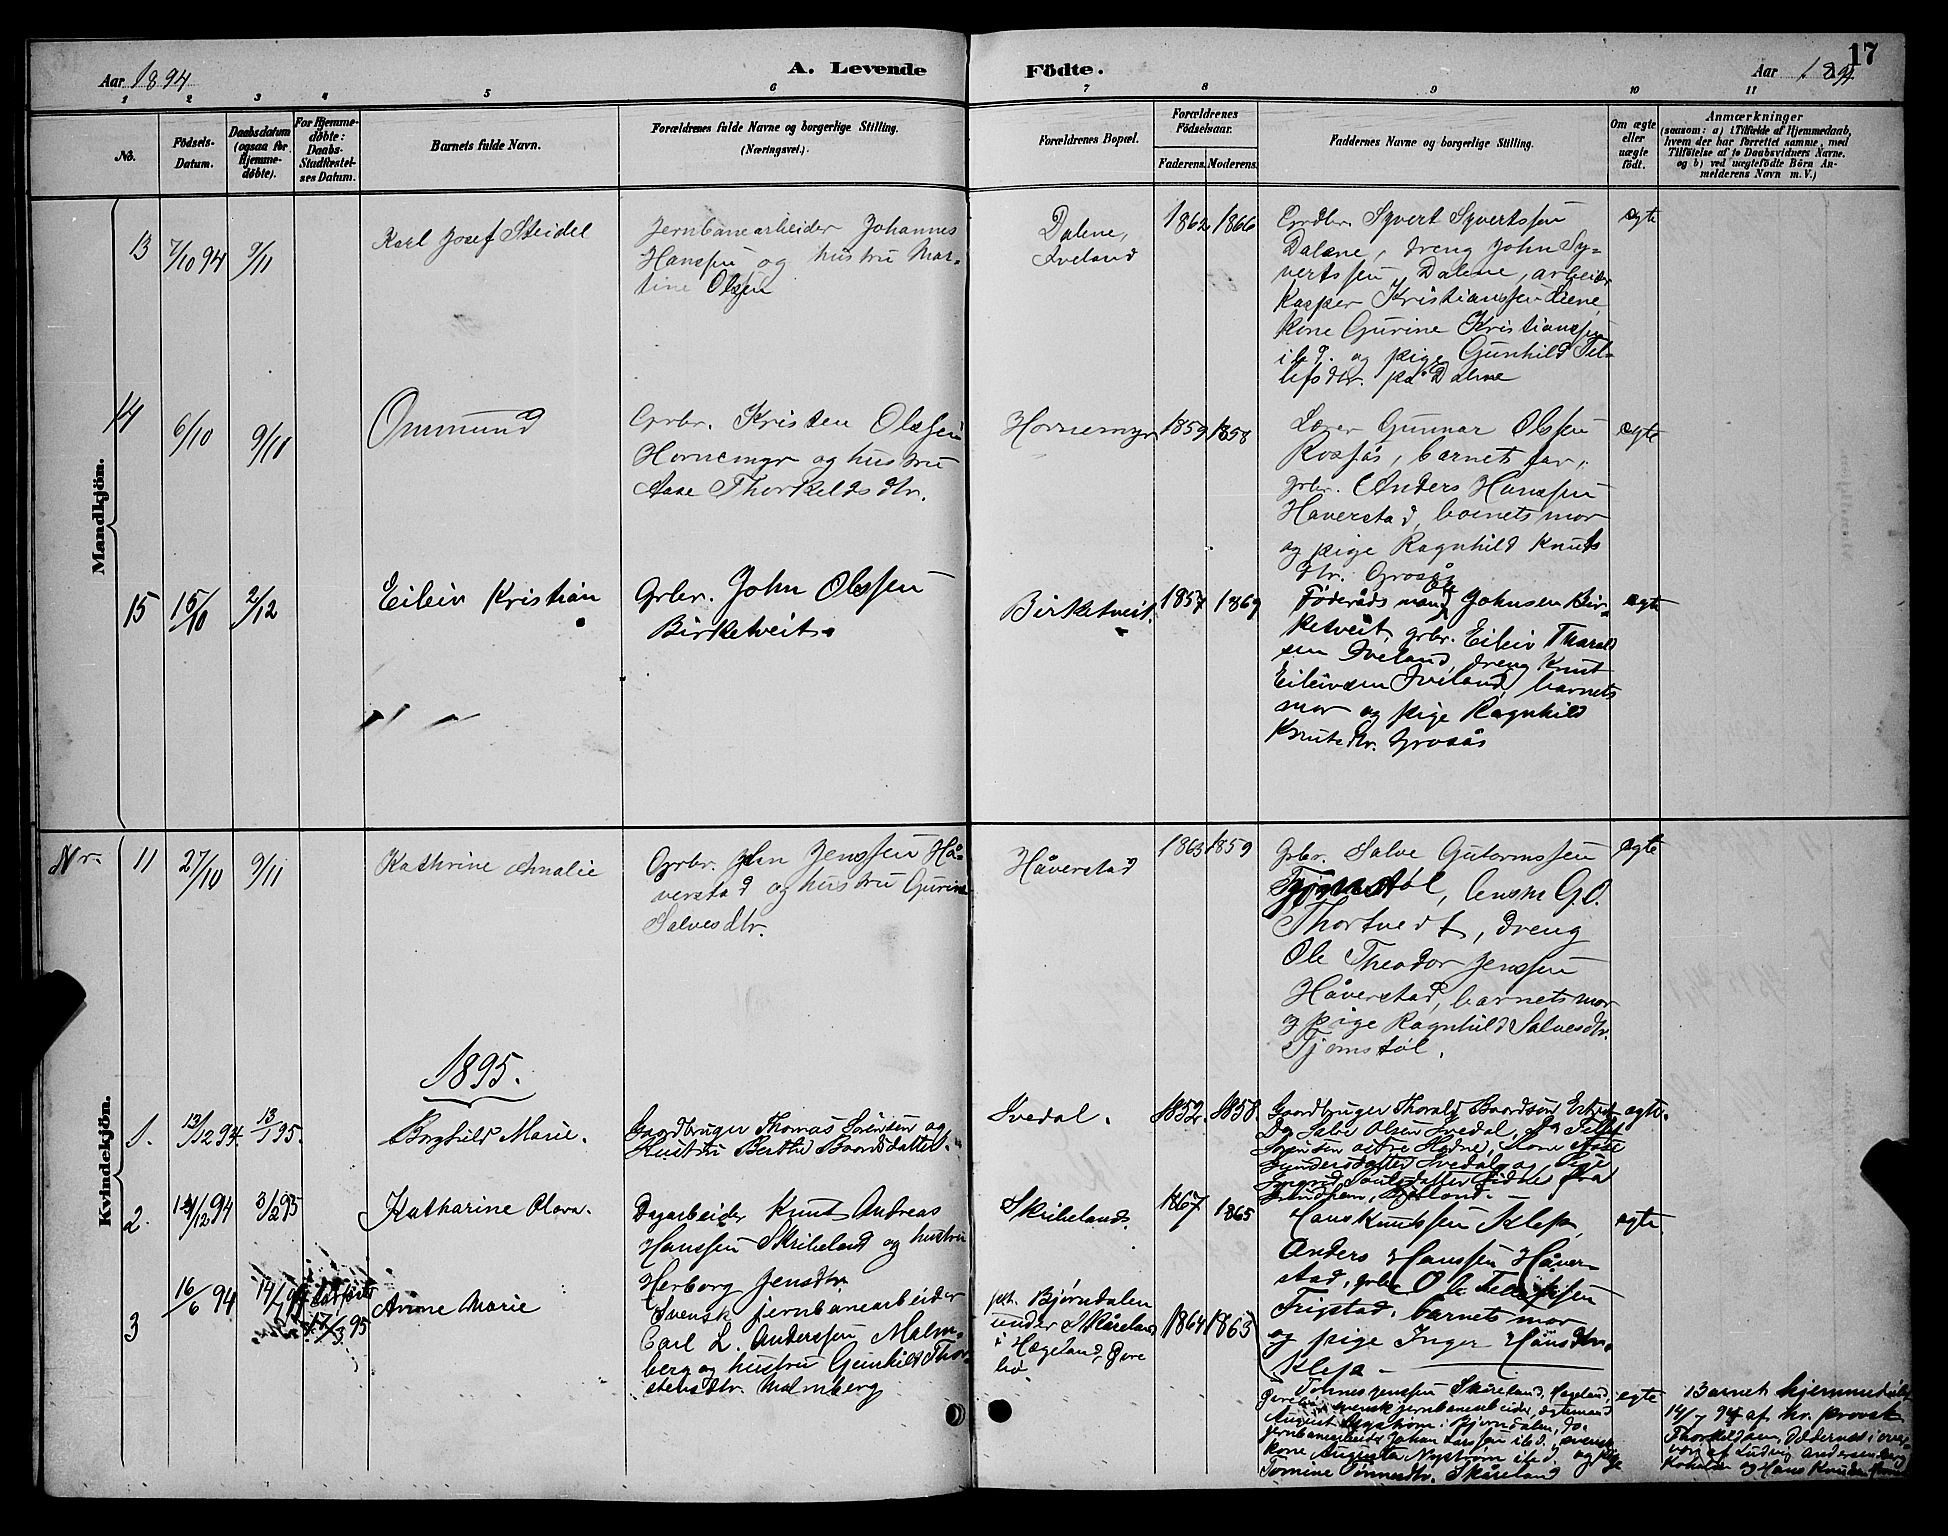 17
Aar 1894
A. Levende
Födte.
Aar 1894
1 2 3 4 5 6 7 8 9 10 11
No.
Födsels-
Datum.
Daabsdatum
(ogsaa for
Hjemme-
døbte).
For Hjemme-
døbte:
Daabs-
Stadfæstel-
ses Datum.
Barnets fulde Navn.
Forældrenes fulde Navne og borgerlige Stilling.
(Næringsvei.)
Forældrenes Bopæl.
Forældrenes
Födselsaar.
Faderens. Moderens.
Faddernes Navne og borgerlige Stilling.
Om ægte
eller
uægte
født.
Anmærkninger
(saasom: a) i Tilfælde af Hjemmedaab,
hvem der har forrettet samme, med
Tilföielse af to Daabsvidners Navne.
og b) ved uægtefödte Börn An-
melderens Navn m. V.)
Mandkjön.
13 7/10 94 9/11
Karl Josef Steidel
Jernbanearbeider Johannes
Hanssen og hustru Mar-
tine Olsen
Dalene,
Iveland
1862 1866
Grdbr. Syvert Syvertssen
Dalene, dreng John Sy-
vertssen Dalene, arbeider
Kasper Kristianssen Liene
kone Gurine Kristianssen
ibd. og pige Gunhild Tel-
lefsdtr. på Dalene
ægte
14 6/10 9/11
Ommund
Grbr. Kristen Olsen
Hornemyr og hustru
Aase Thorkeldsdtr.
Hornemyr
1859 1858
Lærer Gunnar Olssen
Rosås, barnets far,
grbr. Anders Hanssen
Haverstad, barnets mor
og pige Ragnhild Knuts
dtr. Grosås
ægte
15 15/10 2/12
Eileiv Kristian
Grbr. John Olssen
Birketveit.
Birketveit.
1857 1869
Föderådsmand Ole Johnsen Bir-
ketveit, grbr. Eileiv Tharald
sen Iveland, dreng Knut
Eileivsen Iveland, barnets
mor og pige Ragnhild
Knutsdtr. Grosås
ægte
Nr. 11 27/10 9/11
Kathrine Amalie
Grbr. Jhn Jenssen Hå-
verstad og hustru Gurine
Salvesdtr.
Håverstad
1863 1859
Grbr. Salve Gutormssen
Tjomstøl, lensm G.O.
Thortvedt, dreng
Ole Theodor Jenssen
Håverstad, barnets mor
og pige Ragnhild Salvesdtr.
Tjomstøl.
ægte
Kvindekjön.
1895.
1. 13/12 94. 13/1 95.
Borghild Marie.
Gaardbruger Thomas Sörensen og
Hustru Berthe Baardsdatter.
Ivedal.
1852. 1858.
Gaardbruger Thorald Baardsen
Do Salve Olsen Ivedal,
Sörensen østre Hodne, Kone Aase
Gundersdatter Ivedal og Pige
Ingrid fra
ægte.
2. 14/12 94 3/2 95
Katharine Olava.
Dagarbeider Knut Andreas
Hanssen Skribeland og hustru
Herborg Jensdtr.
Skribeland.
1867 1865
Hans Knutssen Klepa
Anders Hanssen Håver-
stad, grbr Ole Tellefssen
Frigstad, barnets mor
og pige Inger Hansdtr.
Klepa
ægte.
3 16/6 94 14/7 94 17/3 95
Anne Marie
Svensk jernbanearbeider
Carl L. Anderssen Malm-
berg og hustru Gunhild Thor-
stensdtr. Malmberg
pt. Bjørndalen
under Skåreland
i Hægeland, Øvre
bø.
1864 1863
Tønnes Jenssen Skåreland, Hægeland,
Øvrebø, svensk jernbanearbeider,
August Nystrøm i Bjørndalen, do.
jernbanearbeider Johan Larssen ibd., svensk
kone Augusta Nystrøm ibd. og pige
Tomine Tønnesdtr. Skåreland
ægte
Barnet hjemmedøbt
14/7 94 af hr. provst
Thorkildsen, Oddernes i over-
vær af Ludvig Andersen
og Hans Knudsen